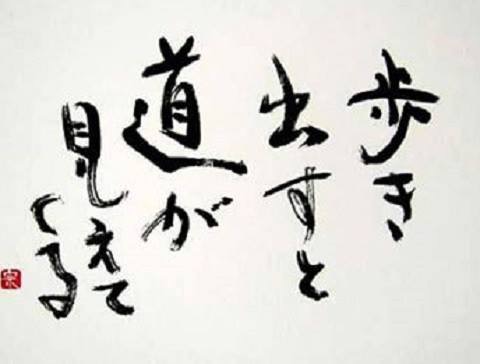 歩き
出すと
道が
見えて
くる